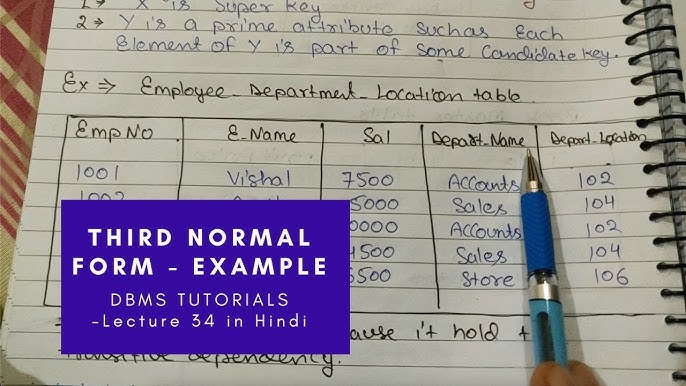 1→ X is Super Key
2→ Y is a prime attribute such as Each
Element of Y is part of some Candidate Key.
Ex ⇒ Employee_Department_Location table.
Emp No E_Name Sal Depart_Name Depart_Location
1001 Vishal 7500 Accounts 102
1002 5000 Sales 104
0000 Accounts 102
4500 Sales 104
6500 Store 106
THIRD NORMAL
FORM - EXAMPLE
DBMS TUTORIALS
-Lecture 34 in Hindi
cause it hold t
dependency.